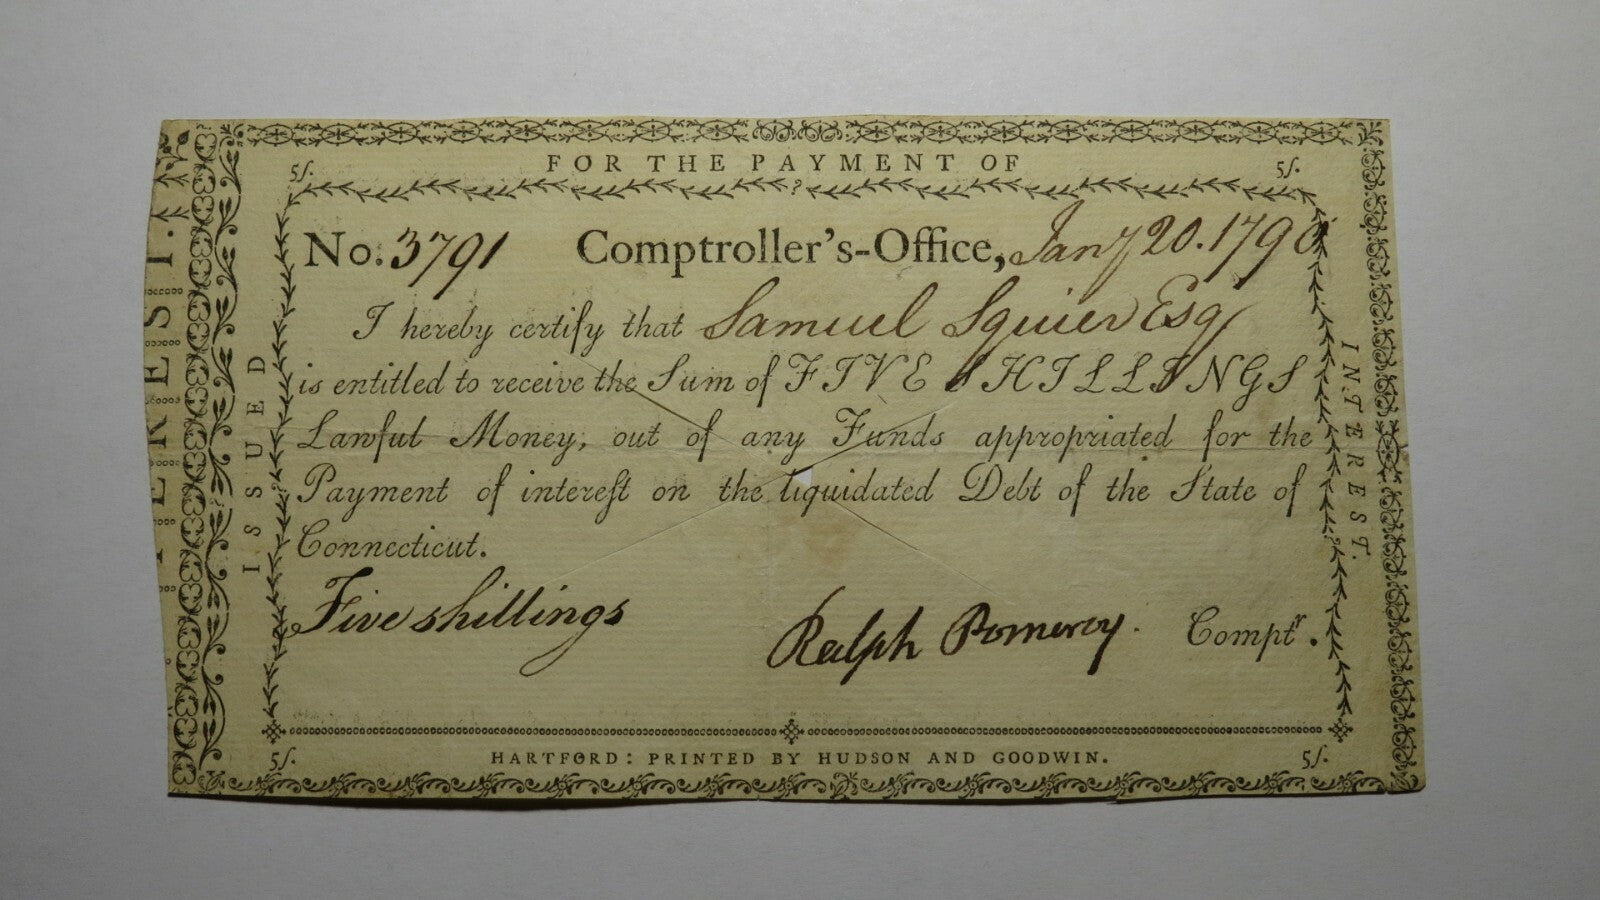 5/. FOR THE PAYMENT OF 5/.
No. 3791 Comptroller's-Office, Jany 20. 1790
I hereby certify that Samuel Squier Esq
is entitled to receive the Sum of FIVE SHILLINGS
Lawful Money, out of any Funds appropriated for the
Payment of intereſt on the liquidated Debt of the State of
Connecticut.
Five shillings
Ralph Pomeroy. Comptr.
5/. HARTFORD: PRINTED BY HUDSON AND GOODWIN. 5/.
ISSUED
INTEREST.
TEREST.